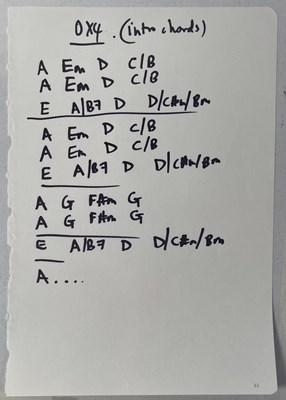 OX4. (intro chords)
A Em D C/B
A Em D C/B
E A/B7 D D/C#m/Bm
A Em D C/B
A Em D C/B
E A/B7 D D/C#m/Bm
A G F#m G
A G F#m G
E A/B7 D D/C#m/Bm
A....